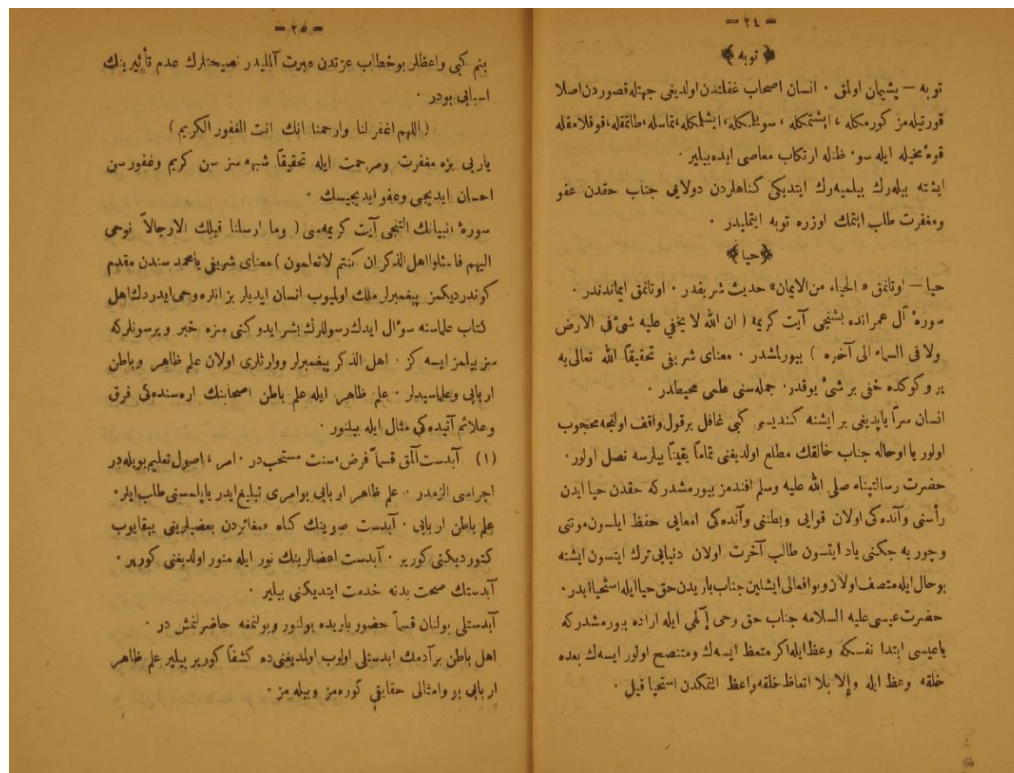 — ٢٤ —
﴿ توبه ﴾
توبه — پشیمان اولمق . انسان اصحاب غفلتدن اولدیغی جهتله قصوردن اصلا
قورتیله‌مز کورمکله ، ایشتمکله ، سویلمکله ، ایشلمکله ، تماسله ، طاتمقله ، قوقلامقله
قوهٔ مخیله ایله سوء ظنله ارتکاب معاصی ایده‌بیلیر .
ایشته بیله‌رك بیلمیه‌رك ایتدیکی کناهلردن دولایی جناب حقدن عفو
ومغفرت طلب ایتمك اوزره توبه ایتملیدر .
﴿ حیا ﴾
حیا — اوتانمق « الحیاء من الایمان » حدیث شریفدر . اوتانمق ایماندندر .
سورهٔ آل عمرانده بشنجی آیت کریمه ( ان الله لا یخفی علیه شیٔ فی الارض
ولا فی السماء الی آخره ) بیورلمشدر . معنای شریفی تحقیقاً الله تعالی‌یه
یر وکوکده خفی بر شیٔ یوقدر . جمله‌سنی علمی محیطدر .
انسان سراً یاپدیغی بر ایشنه کندیسی کبی غافل برقول واقف اولنجه محجوب
اولور یا اوحاله جناب خالقك مطلع اولدیغنی تماماً یقیناً بیلرسه نصل اولور .
حضرت رسالتپناه صلی الله علیه وسلم افندمز بیورمشدرکه حقدن حیا ایدن
رأسنی وآنده‌کی اولان قوایی وبطننی وآنده‌کی امعایی حفظ ایلسون موتنی
وچوریه جکنی یاد ایتسون طالب آخرت اولان دنیایی ترك ایتسون ایشته
بوحال ایله متصف اولان وبوافعالی ایشلین جناب باریدن حق حیا ایله استحیا ایدر .
حضرت عیسی علیه السلامه جناب حق وحی إلٰهی ایله اراده بیورمشدرکه
یاعیسی ابتدا نفسکه وعظ ایله اکر متعظ ایسه‌ك ومتنصح اولور ایسه‌ك بعده
خلقه وعظ ایله وإلا بلا اتعاظ خلقه واعظ التمکدن استحیا قیل .
— ٢٥ —
بنم کبی واعظلر بوخطاب عزتدن عبرت آلملیدر نصیحتلرك عدم تأثیرینك
اسبابی بودر .
( اللهم اغفر لنا وارحمنا انك انت الغفور الکریم )
یاربی بزه مغفرت ومرحمت ایله تحقیقاً شبهه سز سن کریم وغفورسن
احسان ایدیجی وعفو ایدیجیسك .
سورهٔ انبیانك التنجی آیت کریمه‌سنی ( وما ارسلنا قبلك الا رجالاً نوحی
الیهم فاسئلوا اهل الذکر ان کنتم لا تعلمون ) معنای شریفی یا محمد سندن مقدم
کوندردیکمز پیغمبرلر ملك اولمیوب انسان ایدیلر بز انلره وحی ایدردك اهل
کتاب علماسنه سؤال ایدك رسوللرك بشر ایدوکنی سزه خبر ویرسونلرکه
سز بیلمز ایسه کز . اهل الذکر پیغمبرلر ووارثلری اولان علم ظاهر وباطن
اربابی وعلماسیدلر . علم ظاهر ایله علم باطن اصحابنك اره‌سنده‌کی فرق
وعلائم آتیده‌کی مثال ایله بیلنور .
(١) آبدست آلمق قسماً فرض ، سنت مستحب در . امر ، اصول تعلیم بویله‌در
اجراسی الزمدر . علم ظاهر اربابی بوامری تبلیغ ایدر یاپلمسنی طلب ایلر .
علم باطن اربابی . آبدست صوینك کناه صغائردن بعضیلرینی ییقایوب
کتوردیکنی کوریر . آبدست اعضالرینك نور ایله منور اولدیغنی کوریر .
آبدستك صحت بدنه خدمت ایتدیکنی بیلیر .
آبدستلی بولنان قسماً حضور باریده بولنور وبولنمغه حاضرلنمش در .
اهل باطن برآدمك ابدستلی اولوب اولمدیغنی‌ده کشفاً کوریر بیلیر علم ظاهر
اربابی بو وامثالی حقایقی کوره‌مز وبیله‌مز .